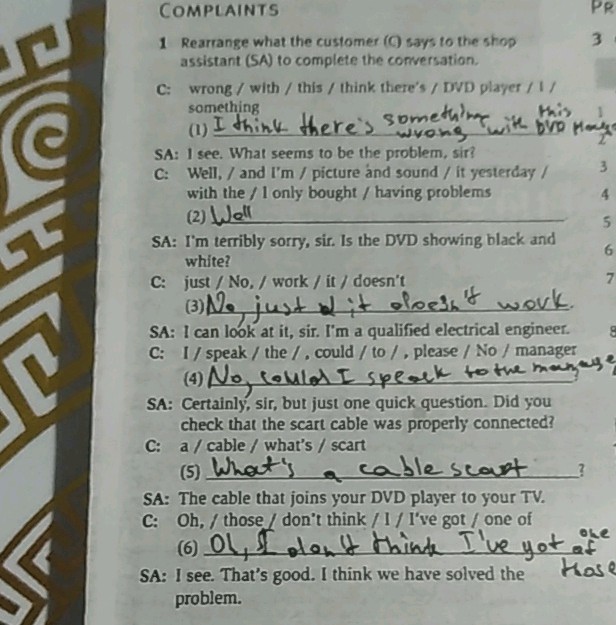 COMPLAINTS
PR
1 Rearrange what the customer (C) says to the shop
3
assistant (SA) to complete the conversation.
C: wrong / with / this / think there's / DVD player / I /
something
(1) I think there's something wrong with this DVD
1
2
SA: I see. What seems to be the problem, sir?
C: Well, / and I'm / picture and sound / it yesterday /
3
with the / I only bought / having problems
4
(2) Well
5
SA: I'm terribly sorry, sir. Is the DVD showing black and
6
white?
C: just / No, / work / it / doesn't
7
(3) No, just it doesn't work.
SA: I can look at it, sir. I'm a qualified electrical engineer.
8
C: I / speak / the / , could / to / , please / No / manager
(4) No, could I speack to the manage
SA: Certainly, sir, but just one quick question. Did you
check that the scart cable was properly connected?
C: a / cable / what's / scart
(5) What's a cable scart ?
SA: The cable that joins your DVD player to your TV.
C: Oh, / those / don't think / I / I've got / one of
(6) Oh, I don't think I've got one of those
SA: I see. That's good. I think we have solved the
problem.